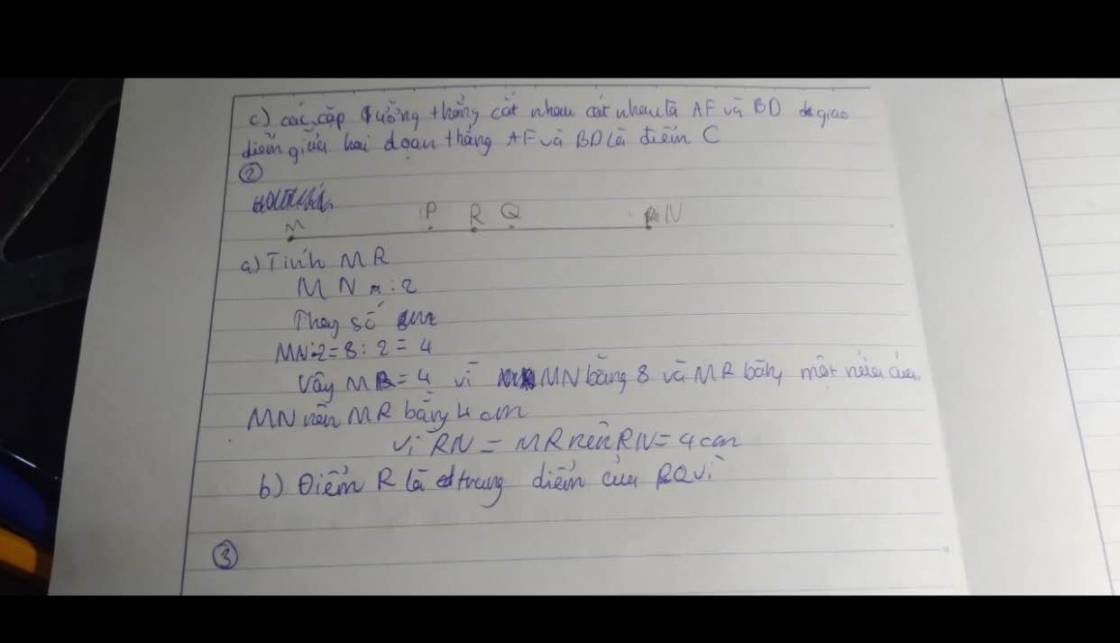 c) các cặp đường thẳng cắt nhau cắt nhau là AF và BD giao
điểm giữa hai đoạn thẳng AF và BD là điểm C
②
M P R Q N
a) Tính MR
MN : 2
Thay số
MN:2=8:2=4
Vậy MR=4 vì MN bằng 8 và MR bằng một nửa của
MN nên MR bằng 4 cm
Vì RN = MR nên RN=4cm
b) Điểm R là trung điểm của PQ vì
③